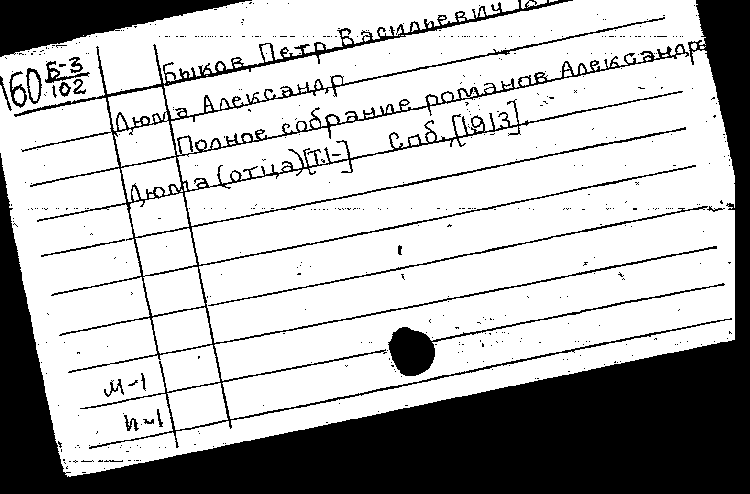 160 Б-3/102
Быков, Петр Васильевич
Дюма, Александр
Полное собрание романов Александра
Дюма (отца) [Т.1-] Спб., [1913].
М-1
п-1